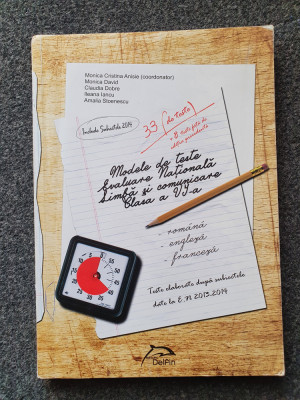 Monica Cristina Anisie (coordonator)
Monica David
Claudia Dobre
Ileana Iancu
Amalia Stoenescu
Include Subiectele 2014
33 (de teste)
+ 8 teste față de
ediția precedentă
Modele de teste
Evaluare Națională
Limbă și comunicare
Clasa a VI-a
- română
- engleză
- franceză
Teste elaborate după subiectele
date la E.N. 2013, 2014
DelFin